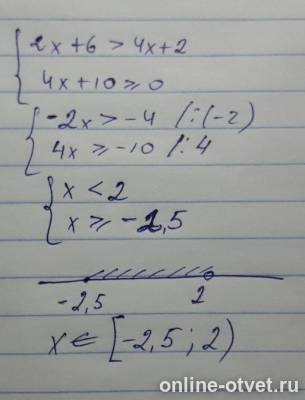 2x+6 > 4x+2
4x+10 ≥ 0
-2x > -4 /:(-2)
4x ≥ -10 /: 4
x < 2
x ≥ -2,5
-2,5 2
x ∈ [-2,5 ; 2)
online-otvet.ru